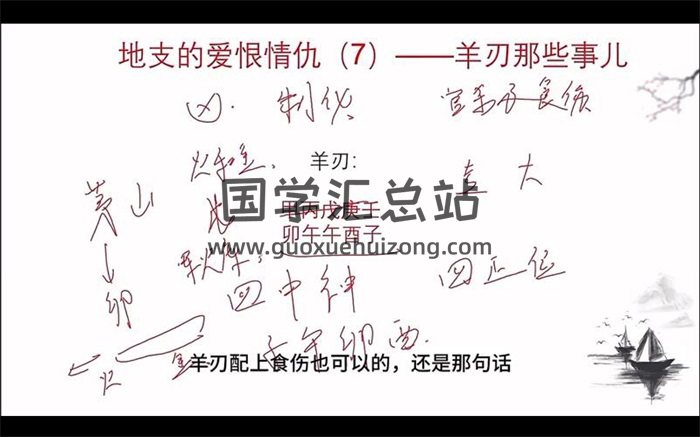 地支的爱恨情仇（7）——羊刃那些事儿
凶. 制化 官杀 食伤
羊刃：
茅山
甲丙戊庚壬
卯午午酉子
国学汇总站
www.guoxuehuizong.com
卯 四中神 四正位
子午卯酉.
火 金
羊刃配上食伤也可以的，还是那句话